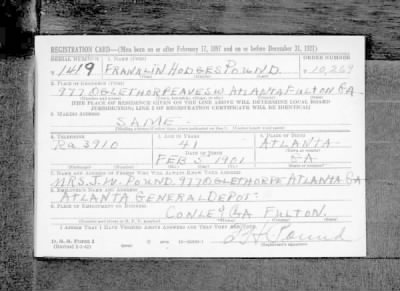 REGISTRATION CARD—(Men born on or after February 17, 1897 and on or before December 31, 1921)
SERIAL NUMBER 1. NAME (Print) ORDER NUMBER
1419 FRANKLIN HODGES POUND 10,269
(First) (Middle) (Last)
2. PLACE OF RESIDENCE (Print)
977 OGLETHORPE AVE SW ATLANTA FULTON GA
[THE PLACE OF RESIDENCE GIVEN ON THE LINE ABOVE WILL DETERMINE LOCAL BOARD
JURISDICTION; LINE 2 OF REGISTRATION CERTIFICATE WILL BE IDENTICAL]
3. MAILING ADDRESS
SAME
4. TELEPHONE 5. AGE IN YEARS 6. PLACE OF BIRTH
Ra 3910 41 ATLANTA
DATE OF BIRTH
FEB 5 1901 GA
7. NAME AND ADDRESS OF PERSON WHO WILL ALWAYS KNOW YOUR ADDRESS
MRS. J. W. POUND. 977 OGLETHORPE ATLANTA GA
8. EMPLOYER'S NAME AND ADDRESS
ATLANTA GENERAL DEPOT
9. PLACE OF EMPLOYMENT OR BUSINESS
CONLEY GA FULTON
I AFFIRM THAT I HAVE VERIFIED ABOVE ANSWERS AND THAT THEY ARE TRUE.
D. S. S. Form 1 Pound